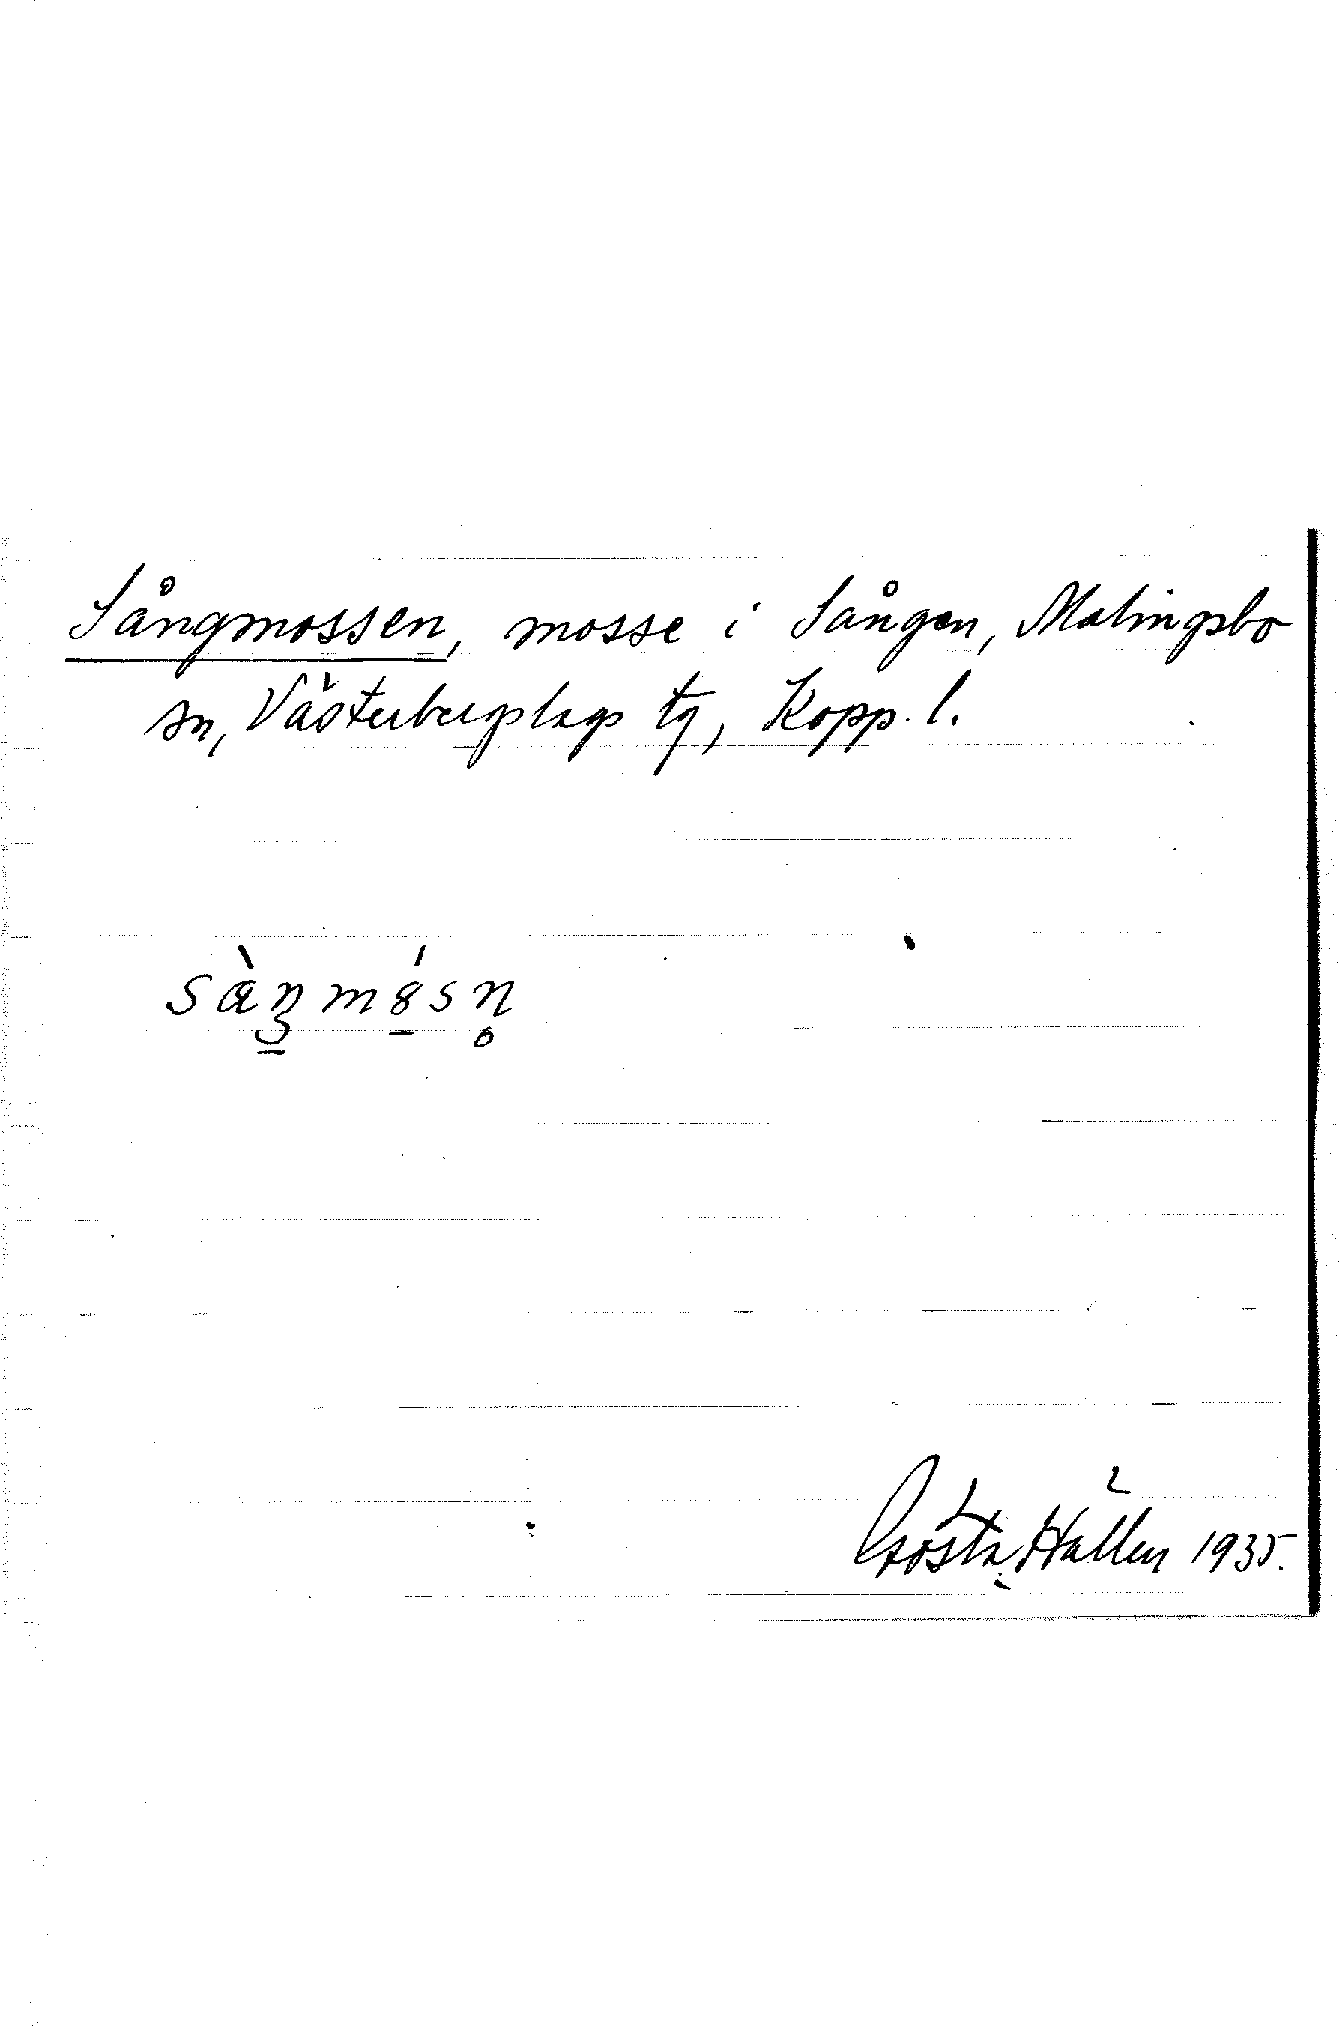 Sångmossen, mosse i Sången, Malingsbo
sn, Västerbergslags tg, Kopp. l.
sàŋm8́sn̥
Gösta Hallen 1935.